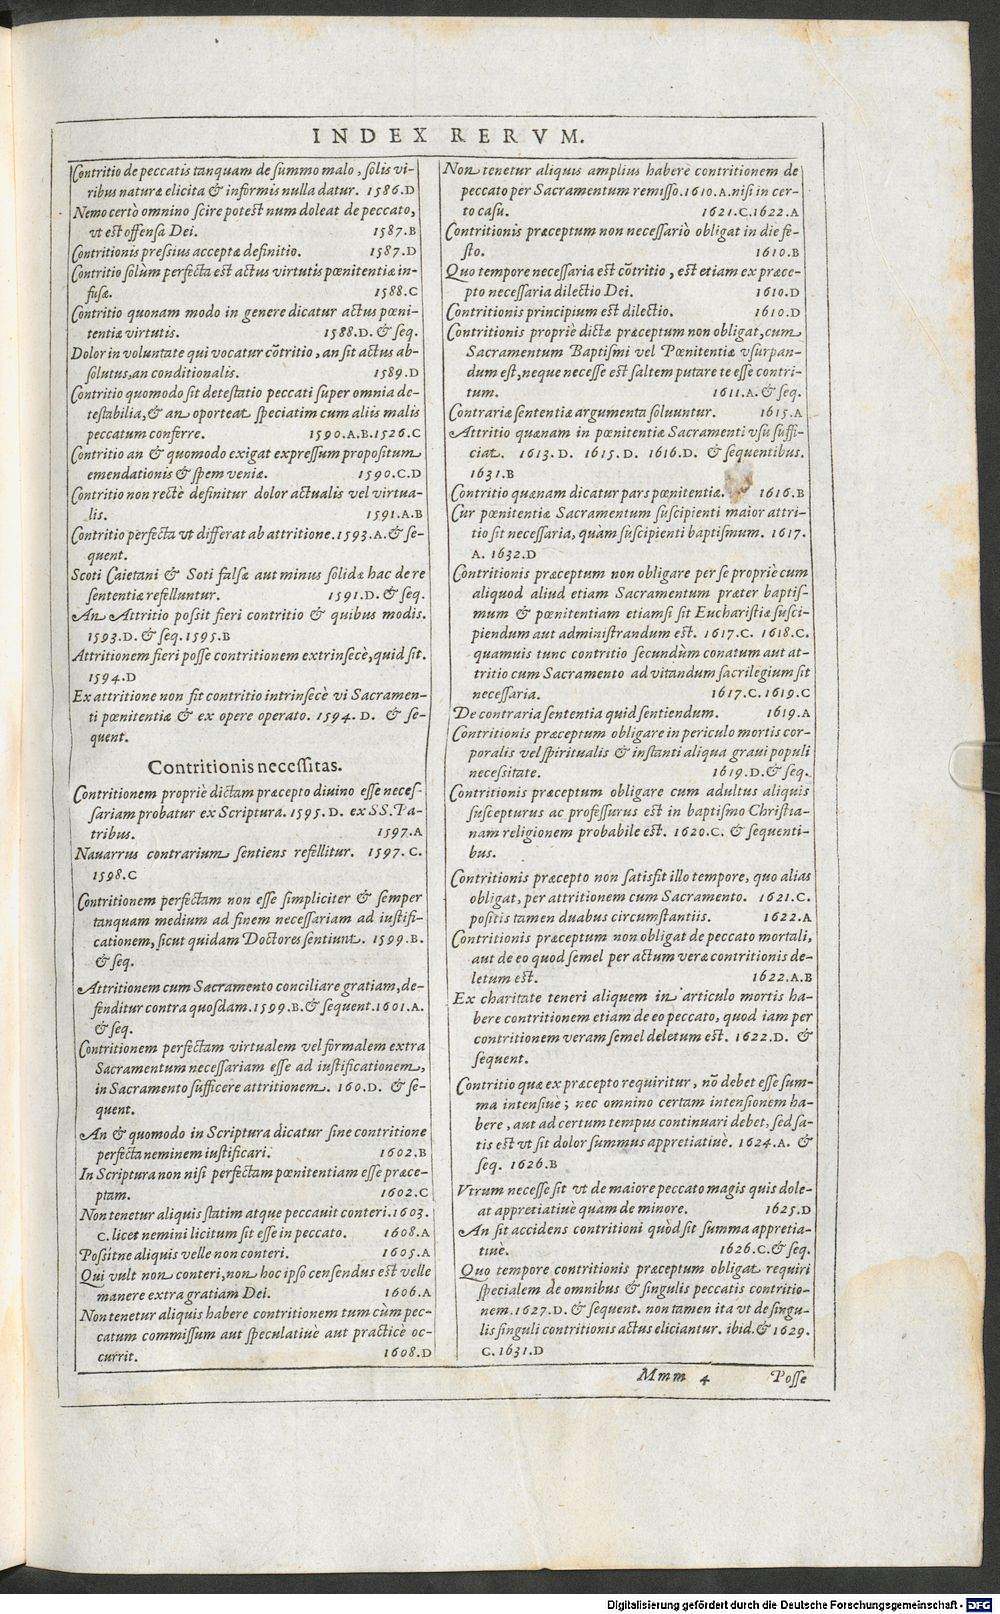 INDEX RERVM.
Contritio de peccatis tanquam de summo malo, solis vi-
ribus naturæ elicita & informis nulla datur. 1586.D
Nemo certò omnino scire potest num doleat de peccato,
vt est offensa Dei. 1587.B
Contritionis pressius acceptæ definitio. 1587.D
Contritio solùm perfecta est actus virtutis pœnitentiæ in-
fusæ. 1588.C
Contritio quonam modo in genere dicatur actus pœni-
tentiæ virtutis. 1588.D. & seq.
Dolor in voluntate qui vocatur cōtritio, an sit actus ab-
solutus, an conditionalis. 1589.D
Contritio quomodo sit detestatio peccati super omnia de-
testabilia, & an oporteat speciatim cum aliis malis
peccatum conferre. 1590.A.B.1526.C
Contritio an & quomodo exigat expressum propositum
emendationis & spem veniæ. 1590.C.D
Contritio non rectè definitur dolor actualis vel virtua-
lis. 1591.A.B
Contritio perfecta vt differat ab attritione. 1593.A. & se-
quent.
Scoti Caietani & Soti falsæ aut minus solidæ hac de re
sententiæ refelluntur. 1591.D. & seq.
An Attritio possit fieri contritio & quibus modis.
1593.D. & seq. 1595.B
Attritionem fieri posse contritionem extrinsecè, quid sit.
1594.D
Ex attritione non fit contritio intrinsecè vi Sacramen-
ti pœnitentiæ & ex opere operato. 1594. D. & se-
quent.
Contritionis necessitas.
Contritionem propriè dictam præcepto divino esse neces-
sariam probatur ex Scriptura. 1595. D. ex SS. Pa-
tribus. 1597.A
Nauarrus contrarium sentiens refellitur. 1597. C.
1598.C
Contritionem perfectam non esse simpliciter & semper
tanquam medium ad finem necessariam ad iustifi-
cationem, sicut quidam Doctores sentiunt. 1599.B.
& seq.
Attritionem cum Sacramento conciliare gratiam, de-
fenditur contra quosdam. 1599.B. & sequent. 1601.A.
& seq.
Contritionem perfectam virtualem vel formalem extra
Sacramentum necessariam esse ad iustificationem,
in Sacramento sufficere attritionem. 160.D. & se-
quent.
An & quomodo in Scriptura dicatur sine contritione
perfecta neminem iustificari. 1602.B
In Scriptura non nisi perfectam pœnitentiam esse præce-
ptam. 1602.C
Non tenetur aliquis statim atque peccauit conteri. 1603.
C. licet nemini licitum sit esse in peccato. 1608.A
Possitne aliquis velle non conteri. 1605.A
Qui vult non conteri, non hoc ipso censendus est velle
manere extra gratiam Dei. 1606.A
Non tenetur aliquis habere contritionem tum cùm pec-
catum commissum aut speculatiuè aut practicè oc-
currit. 1608.D
Non tenetur aliquis amplius habere contritionem de
peccato per Sacramentum remisso. 1610.A. nisi in cer-
to casu. 1621.C.1622.A
Contritionis præceptum non necessariò obligat in die fe-
sto. 1610.B
Quo tempore necessaria est cōtritio, est etiam ex præce-
pto necessaria dilectio Dei. 1610.D
Contritionis principium est dilectio. 1610.D
Contritionis propriè dictæ præceptum non obligat, cum
Sacramentum Baptismi vel Pœnitentiæ vsurpan-
dum est, neque necesse est saltem putare te esse contri-
tum. 1611.A. & seq.
Contrariæ sententiæ argumenta soluuntur. 1615.A
Attritio quænam in pœnitentiæ Sacramenti vsu suffi-
ciat. 1613. D. 1615. D. 1616.D. & sequentibus.
1631.B
Contritio quænam dicatur pars pœnitentiæ. 1616.B
Cur pœnitentiæ Sacramentum suscipienti maior attri-
tio sit necessaria, quàm suscipienti baptismum. 1617.
A. 1632.D
Contritionis præceptum non obligare per se propriè cum
aliquod aliud etiam Sacramentum præter baptis-
mum & pœnitentiam etiamsi sit Eucharistiæ susci-
piendum aut administrandum est. 1617.C. 1618.C.
quamuis tunc contritio secundùm conatum aut at-
tritio cum Sacramento ad vitandum sacrilegium sit
necessaria. 1617.C.1619.C
De contraria sententia quid sentiendum. 1619.A
Contritionis præceptum obligare in periculo mortis cor-
poralis vel spiritualis & instanti aliqua graui populi
necessitate. 1619.D. & seq.
Contritionis præceptum obligare cum adultus aliquis
suscepturus ac professurus est in baptismo Christia-
nam religionem probabile est. 1620.C. & sequenti-
bus.
Contritionis præcepto non satisfit illo tempore, quo alias
obligat, per attritionem cum Sacramento. 1621.C.
positis tamen duabus circumstantiis. 1622.A
Contritionis præceptum non obligat de peccato mortali,
aut de eo quod semel per actum veræ contritionis de-
letum est. 1622.A.B
Ex charitate teneri aliquem in articulo mortis ha-
bere contritionem etiam de eo peccato, quod iam per
contritionem veram semel deletum est. 1622.D. &
sequent.
Contritio quæ ex præcepto requiritur, nō debet esse sum-
ma intensiuè; nec omnino certam intensionem ha-
bere, aut ad certum tempus continuari debet, sed sa-
tis est vt sit dolor summus appretiatiuè. 1624.A. &
seq. 1626.B
Vtrum necesse sit vt de maiore peccato magis quis dole-
at appretiatiuè quàm de minore. 1625.D
An sit accidens contritioni quòd sit summa appretia-
tiuè. 1626.C. & seq.
Quo tempore contritionis præceptum obligat requiri
specialem de omnibus & singulis peccatis contritio-
nem. 1627.D. & sequent. non tamen ita vt de singu-
lis singuli contritionis actus eliciantur. ibid. & 1629.
C. 1631.D
Mmm 4 Posse
Digitalisierung gefördert durch die Deutsche Forschungsgemeinschaft - DFG